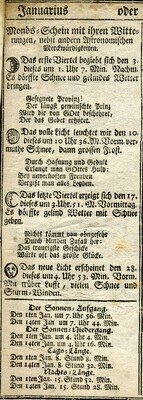 Januarius oder
Monds-Schein mit ihren Witte-
rungen, nebst andern Astronomischen
Merckwürdigkeiten.
Das erste Viertel begiebt sich den 3.
dieses um 1. Uhr 7. Min. Nachm.
Es dörffte Schnee und gelindes Wetter
bringen.
Gesegnete Provintz!
Der längst gewünschte Printz
Wird dir von GOtt bescheheret,
Der das Gebet erhöret.
Das volle Licht leuchtet vor den 10.
dieses um 10 Uhr 36. M. Vorm. ver-
muthlich Schnee, dann grossen Frost.
Durch Hoffnung und Gedult
Erlangt man GOttes Huld:
Bey unverhofften Freuden
Vergißt man alles Leyden.
Das letzte Viertel erzeigt sich den 17.
dieses um 3. Uhr, 51. M. Vormittag.
Es dörffte gelind Wetter mit Schnee
geben.
Nichts kömmt von ohngefehr
Durch blinden Zufall her:
Das wenigste Geschicke
Würckt oft das große Glücke.
Das neue Licht erscheinet den 28.
dieses um 4. Uhr 53. Min. Vorm.
Mit trüber Luft, vielen Schnee und
Sturm-Winden.
Der Sonnen-Aufgang.
Den 1ten Jan. um 7. Uhr 56. Min.
Den 14ten Jan um 7. Uhr 44. Min.
Der Sonnen-Niedergang.
Den 1ten Jan. um 4. Uhr 4. Min.
Den 14ten Jan. um 4. Uhr 16. Min.
Tags-Länge.
Den 1ten Jan. 8. Stund 8. Min.
Den 14ten Jan. 8. Stund 32. Min.
Nachts-Länge.
Den 1ten Jan. 15. Stund 52. Min.
Den 14ten Jan. 15. Stund 28. Min.